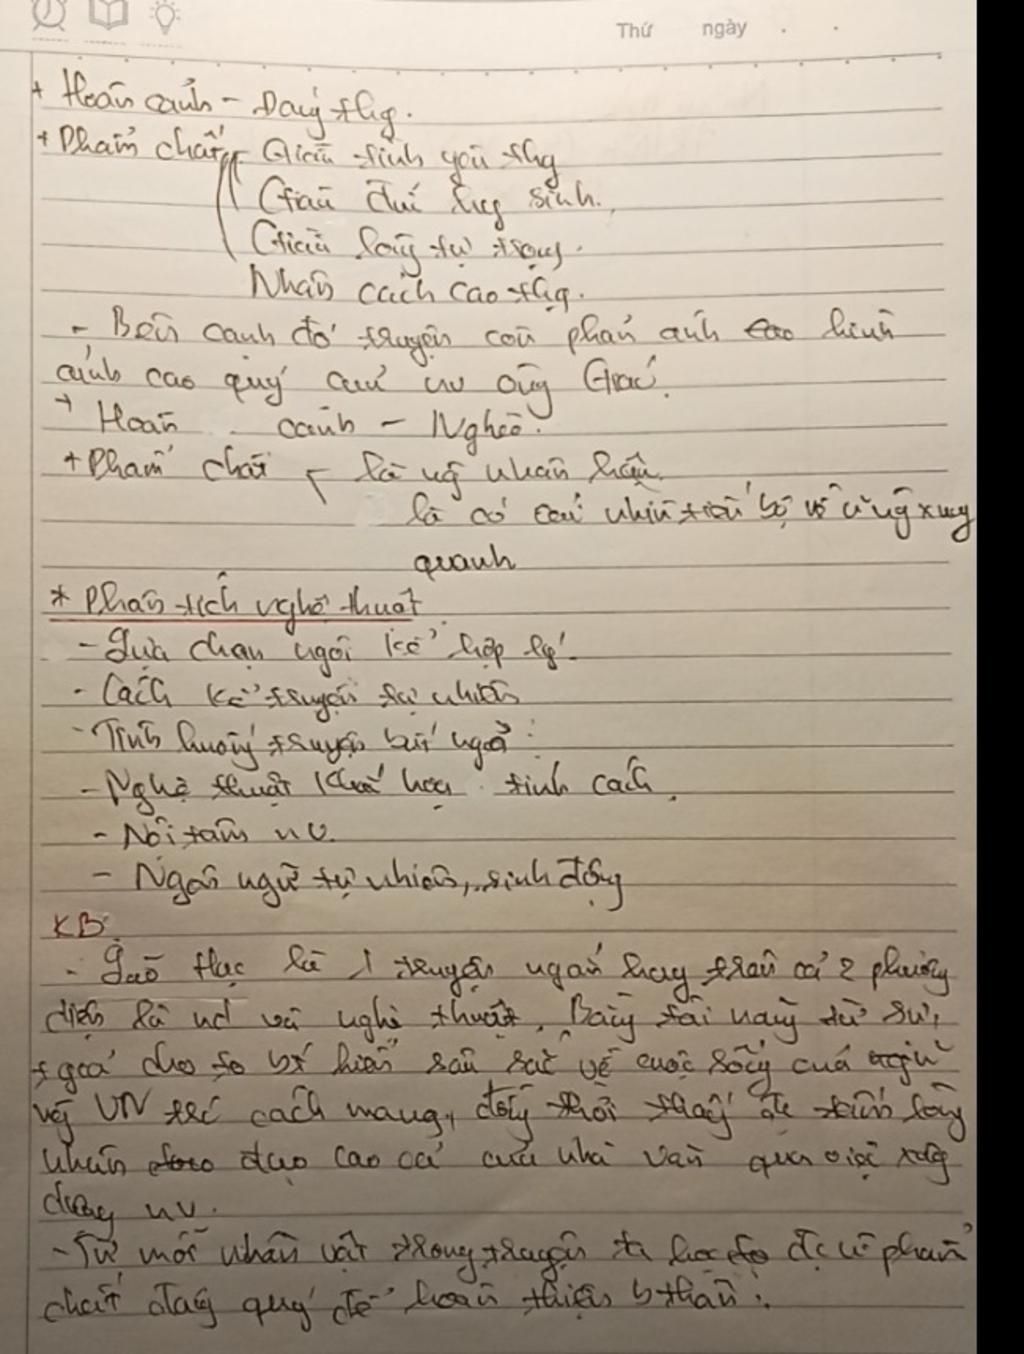 Thứ ngày
+ Hoàn cảnh - Đáng thg.
+ Phẩm chất Giàu tình yêu thg
Giàu đức hy sinh.
Giàu lòng tự trọng.
Nhân cách cao thg.
- Bên cạnh đó truyện còn phản ánh hình
ảnh cao quý của nv ông Giáo.
+ Hoàn cảnh - Nghèo.
+ Phẩm chất là ng nhân hậu.
là có cái nhìn tiến bộ về xung
quanh
* Phân tích nghệ thuật
- Lựa chọn ngôi kể hợp lý.
- Cách kể truyện tự nhiên
- Tình huống truyện bất ngờ:
- Nghệ thuật khắc hoạ tính cách.
- Nội tâm nv.
- Ngôn ngữ tự nhiên, sinh động
KB:
- Lão Hạc là 1 truyện ngắn hay trên cả 2 phương
diện là nd và nghệ thuật. Bằng tài năng
t giả cho hiểu sâu sắc về cuộc sống của
VN cách mạng, đồng thời thấy đc tấm lòng
nhân đạo cao cả của nhà văn qua việc xây
dựng nv.
- Từ mỗi nhân vật trong truyện ta học đc phẩm
chất đáng quý để hoàn thiện b thân.